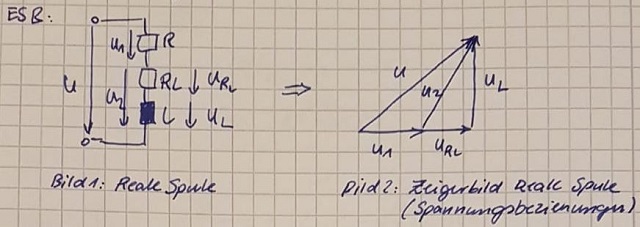 ESB:
u1 R
u
u2 RL uRL
L uL
⇒
u u2 uL
u1 uRL
Bild 1: Reale Spule
Bild 2: Zeigerbild Reale Spule
(Spannungsbeziehungen)